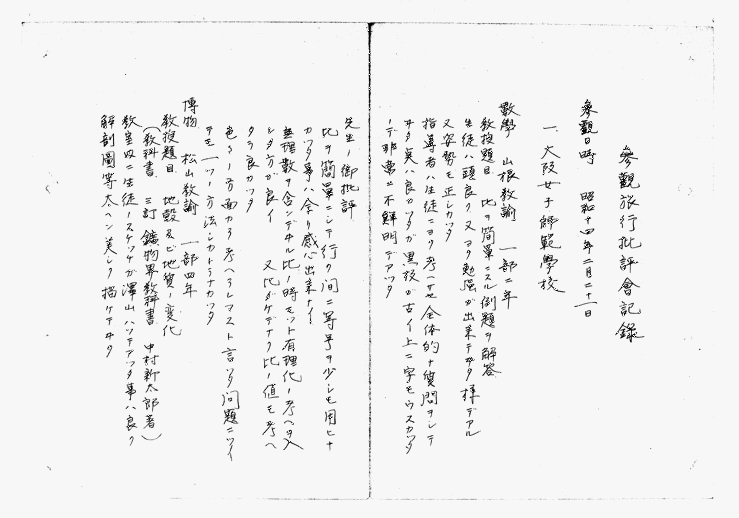 參觀旅行批評會記錄
參觀日時 昭和十四年二月二十一日
一、大阪女子師範學校
數學 山根教諭 一部二年
教授題目 比ヲ簡單ニスル例題ヲ解答
生徒ハ頭良ク又ヨク勉強ガ出來テヰタ様デアル
又姿勢モ正シカッタ
指導者ハ生徒ニヨク考ヘサセ全体的ナ質問ヲシテ
ヰタ点ハ良カッタガ黒板ガ古イ上ニ字モウスカッタ
ノデ非常ニ不鮮明デアッタ
先生ノ御批評
比ヲ簡單ニシテ行ク间ニ等号ヲ少シモ用ヒナ
カッタ事ハ余リ感心出来ナイ
無理数ヲ含ンデヰル比ノ時モット有理化ノ考ヘヲ入
レタ方ガ良イ 又比ダケデナク比ノ値モ考ヘ
タラ良カッタ
色々ノ方面カラ考ヘラレマスト言ッタ问題ニツイ
テモ一ツノ方法シカトラナカッタ
博物 松山教諭 一部四年
教授題目 地殼及ビ地質ノ変化
(教科書 三訂 鑛物界教科書 中村新太郎著)
教室内ニ生徒ノスケッチガ澤山ハッテアッタ事ハ良ク
解剖圖等大ヘン美シク描ケテヰタ